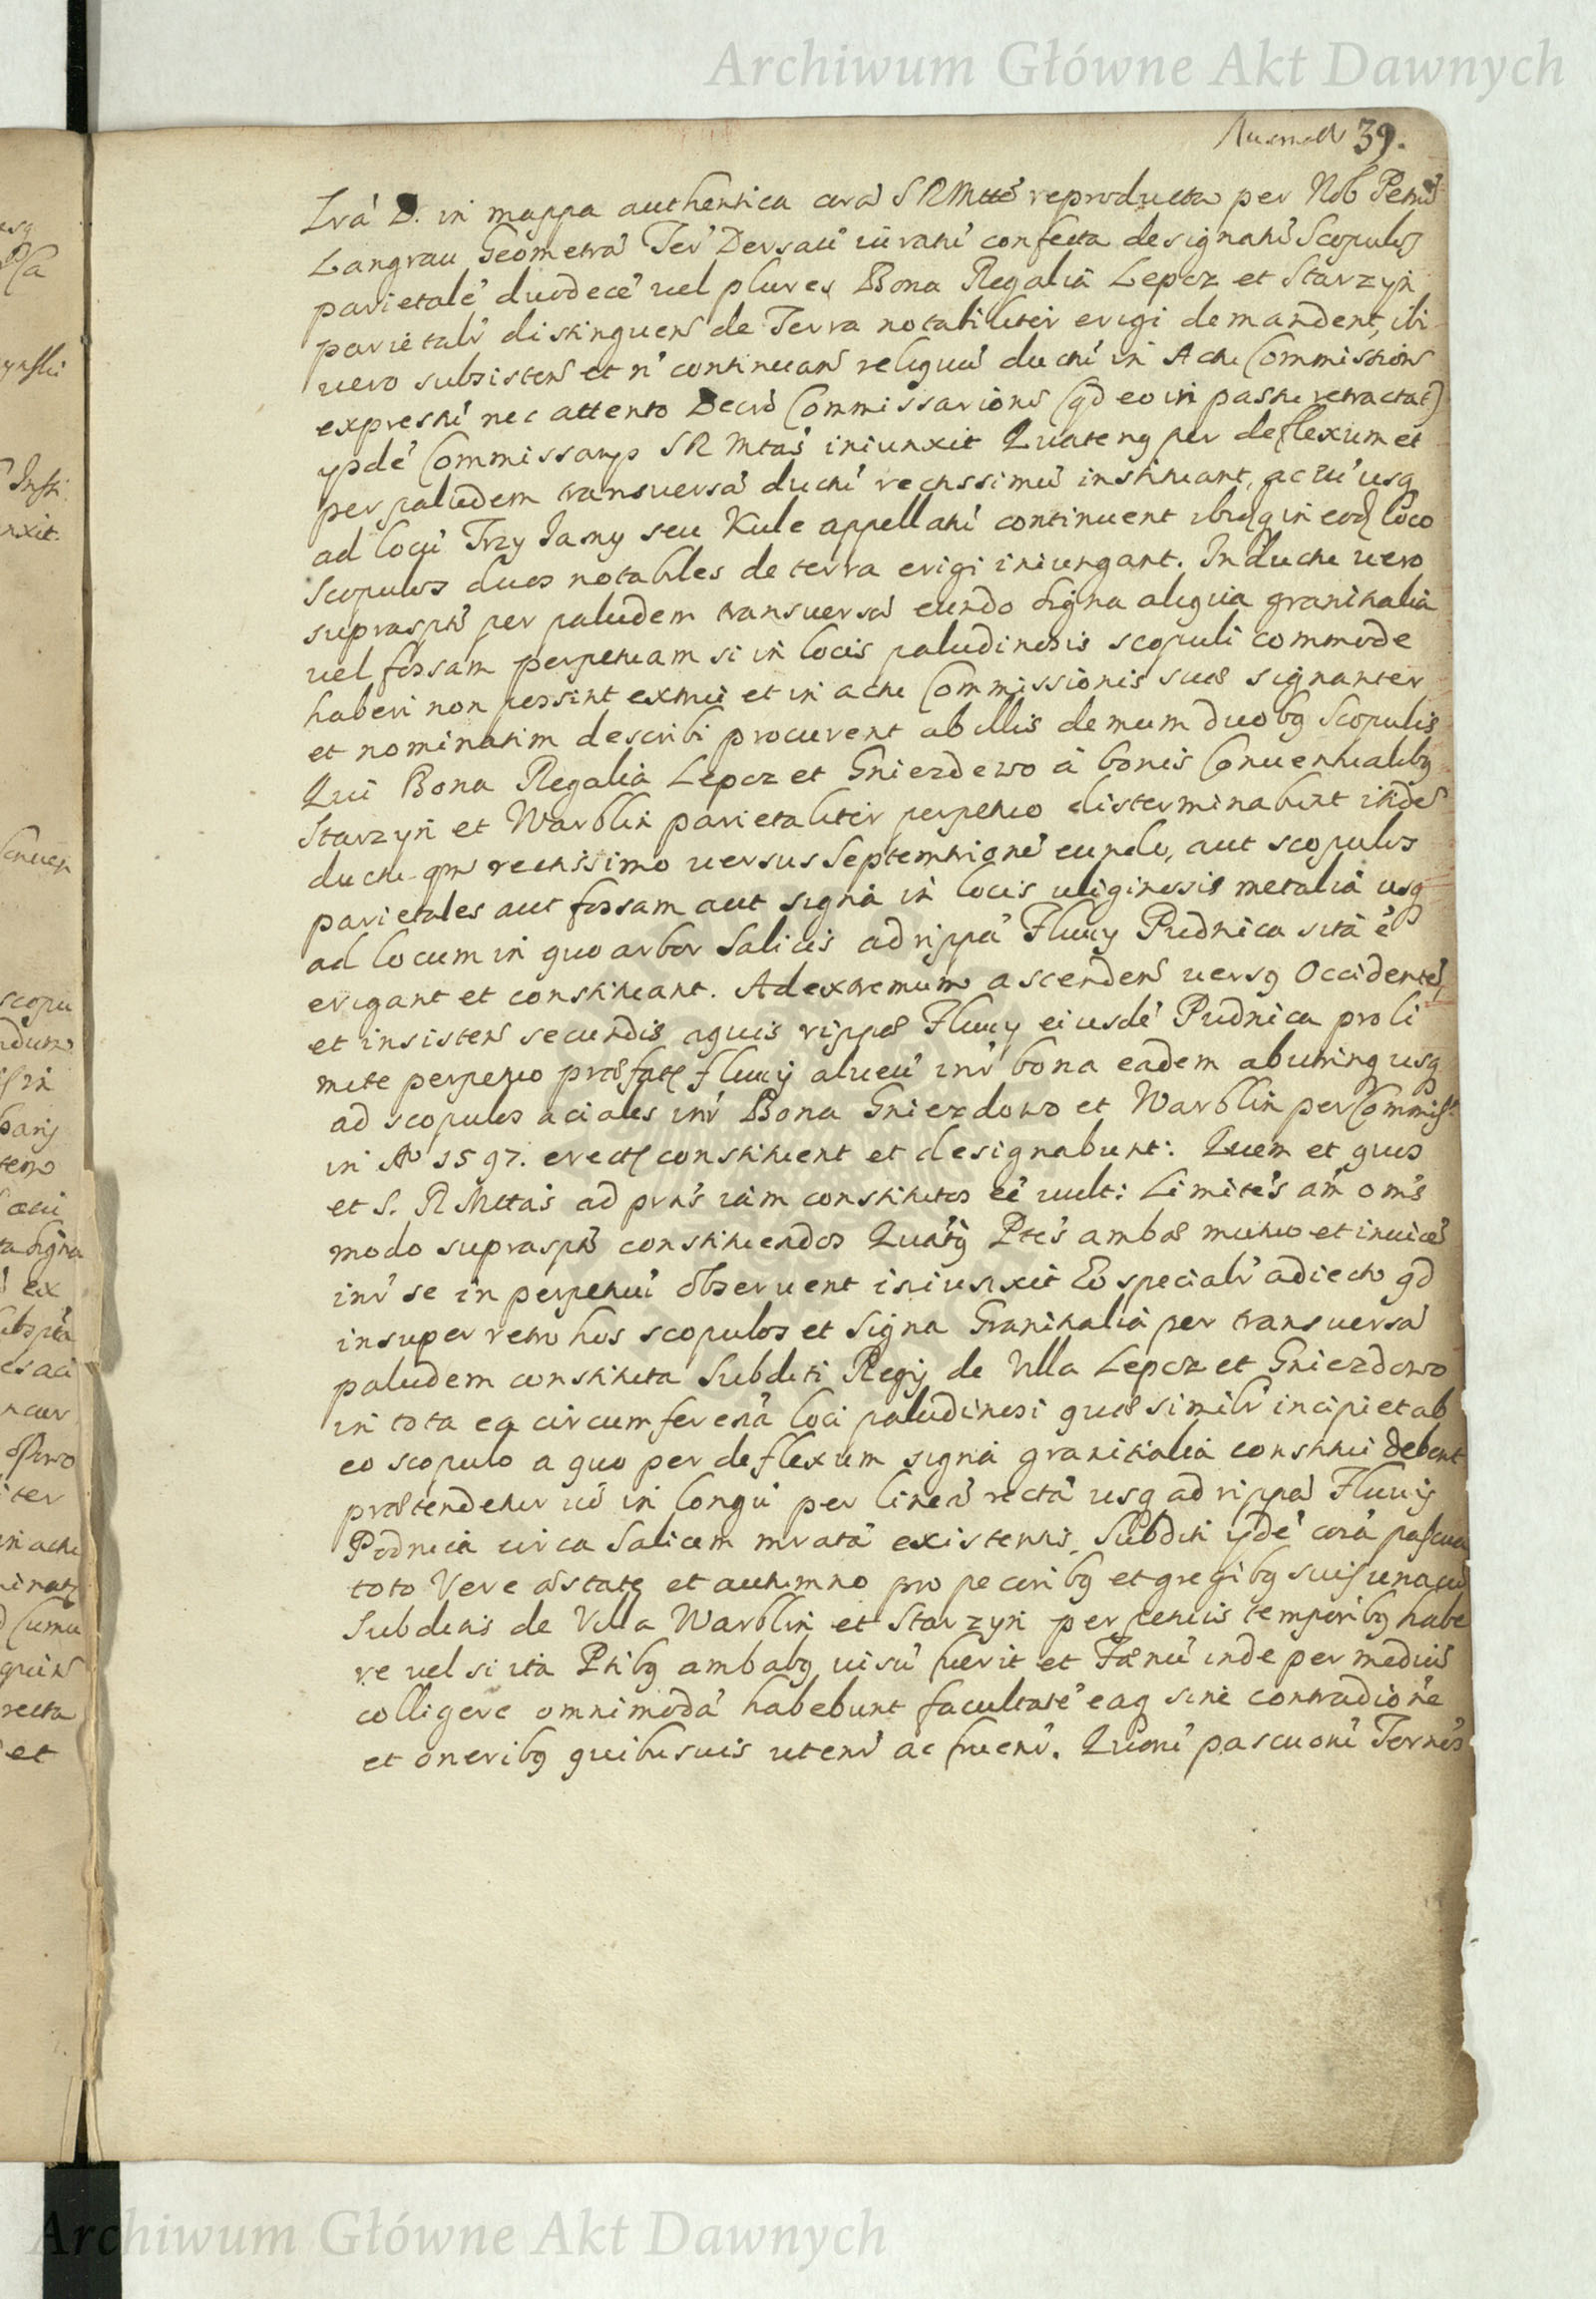 Archiwum Główne Akt Dawnych
39.
Lrá D. in mappa authentica corã SRMtté reproducta per Nob Petrũ
Langrau Geometrã Ter' Dersaú iurati confecta designati Scopulos
parietalé duodecé uel plures Bona Regalia Lepcz et Starzyn
parietalr distinguen de Terra notabiliter erigi demandent, ibi
uero subsisten et ń continuan reliquú ducti in Actu Commission
expressi nec attento Decrõ Commissarion (qd eo in passu retractat)
ypdé Commissarys SR Mtás iniunxit Quatenq per deflexum et
per paludem transuersá ducti rectissimú instituant, ac eú usq
ad locú Trzy Jamy seu Kule appellati continuent ibidq in eod loco
Scopulos duos notabiles de terra erigi iniungant. In ductu uero
supraspto per paludem transuersã eundo signa aliqua granitialia
uel fossam perpetuam si in locis paludinosis scopuli commode
haberi non possint extrui et in actu Commissionis suæ signanter
et nominatim describi procurent ab illis demum duobq Scopulis
Qui Bona Regalia Lepcz et Gniezdewo á bonis Conuentualibq
Starzyn et Warblin parietaliter perpetuo disterminabunt itidé
ductu qm rectissimo uersus Septemtrioné eundo, aut scopulos
parietales aut fossam aut signa in locis uliginosis metalia usq
ad locum in quo arbor Salicis ad rippá Fluuy Pudnica sitá é
erigant et constituant. Ad extremum ascenden uersq Occidenté,
et insisten secundis aquis rippæ Fluuy eiusdé Pudnica pro li
mite perpetuo præfate fluuij alueú intr bona eadem aburinq usq
ad scopulos aciales intr Bona Gniezdowo et Warblin per Commiss
in Ao 1597. erect constituent et designabunt: Quem et quos
et S. R Mttás ad prńs iám constitutos éé uult: Limités am omś
modo supraspto constituendos Quatq Ptés ambæ mutuo et inuicé
intr se in perpetuú obseruent iniunxit Eo specialr adiecto qd
insuper retro hos scopulos et signa Granitialia per transuersã
paludem constituta Subditi Regij de Villa Lepcz et Gniezdowo
in tota ea circumferentiá loci paludinosi quæ similr incipiet ab
eo scopulo a quo per deflexum signa granitialia constitui debent
prætendetur uó in longú per lineã rectá usq ad rippã Fluuij
Podnicá circa Salicem mratá existentis, Subditi ydé corá pascua
toto Vere æstate et autumno pro pecoribq et gregibq suis una cũ
Subditis de Villa Warblin et Starzyn perpetuis temporibq habe
re uel si ita Ptibq ambabq uisú fuerit et Fænú inde per mediú
colligere omnimodá habebunt facultaté eaq siné contradioné
et oneribq quibusuis utentr ac fruentr. Quorú pascuorú Terneś
Archiwum Główne Akt Dawnych